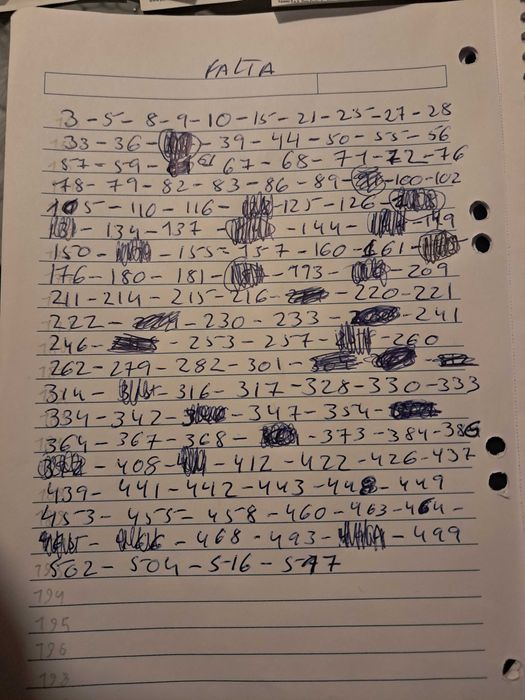 FALTA
3-5-8-9-10-15-21-25-27-28
33-36- -39-44-50-55-56
57-59- 61 67-68-71-72-76
78-79-82-83-86-89- -100-102
105-110-116- -125-126-
-134-137- -144- -149
150- -155-157-160-161-
176-180-181- -193- -209
211-214-215-216- -220-221
222- -230-233- -241
246- -253-257- -260
262-279-282-301-
314- -316-317-328-330-333
334-342- -347-354-
364-367-368- -373-384-386
-408- -412-422-426-437
439-441-442-443-448-449
453-455-458-460-463-464-
- -468-493- -499
502-504-516-517
194
195
196
198